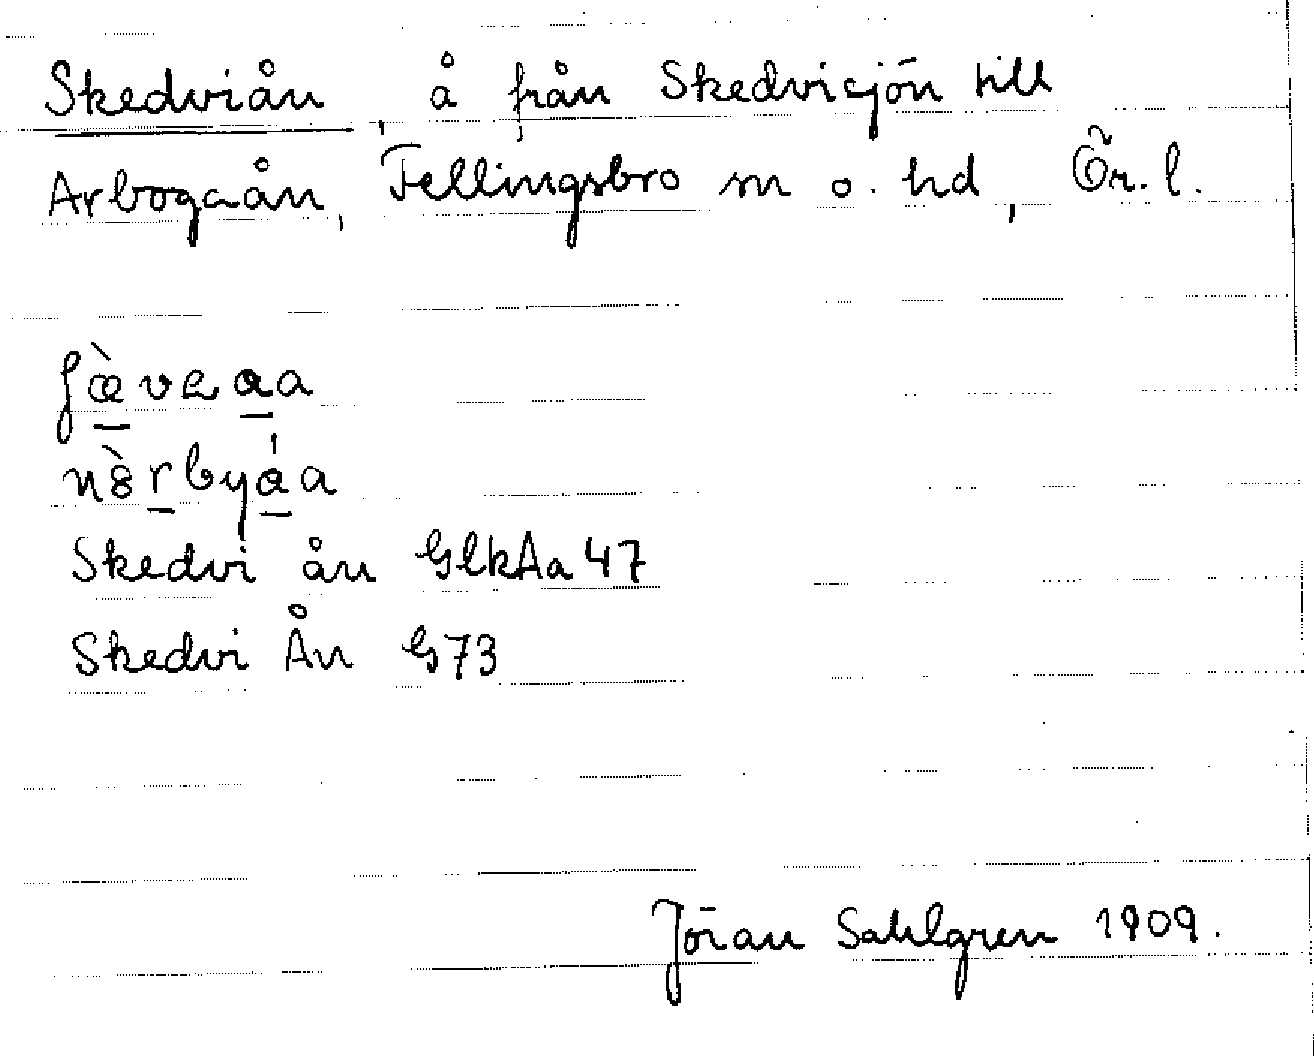 Skedviån, å från Skedvisjön till
Arbogaån, Fellingsbro sn o. hd, Ör. l.
Skedvi ån GlkAa 47
Skedvi Ån G73
Jöran Sahlgren 1909.